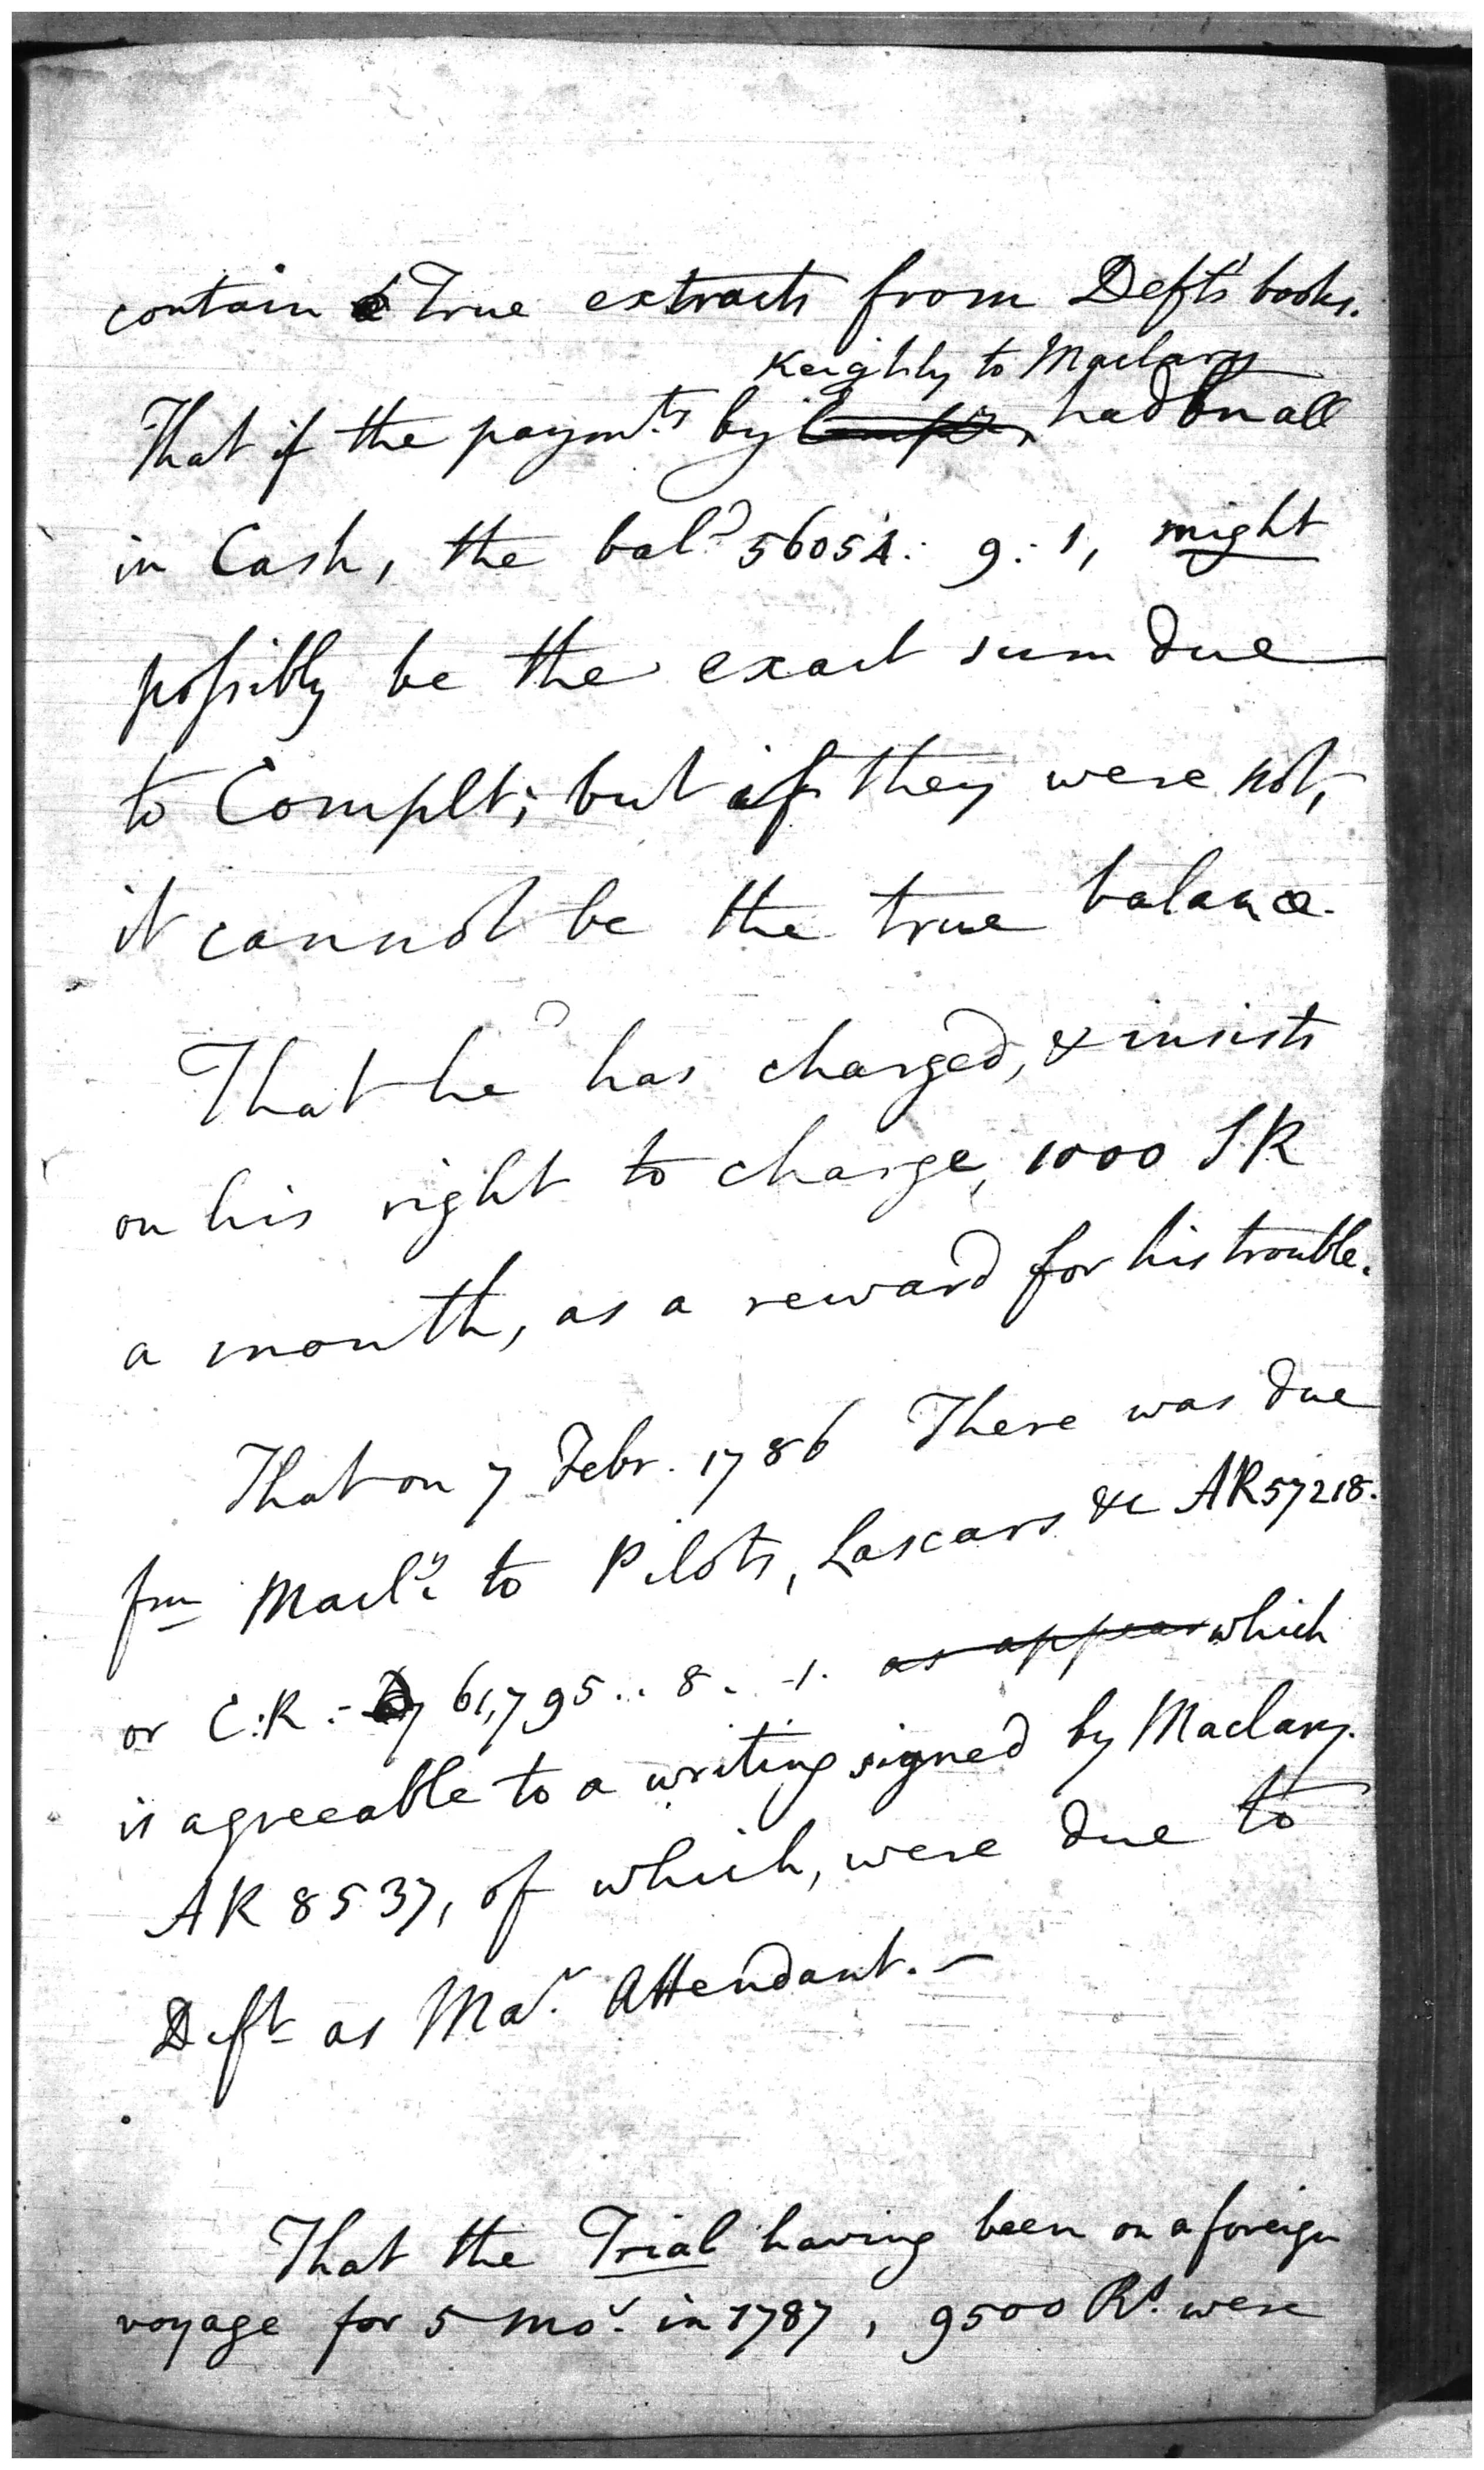 contain True extracts from Defts' books.
Keighly to Maclary
That if the paym.ts by had bn all
in Cash, the bal.d 56054: 9: 1, might
possibly be the exact sum due
to Complt; but if they were not,
it cannot be the true balance.
That he has charged, & insists
on his right to charge, 1000 SR
a month, as a reward for his trouble.
That on 7 Febr. 1786 There was due
fm Macl.y to Pilots, Lascars &c AR 57218.
or C:R:- 61,795.. 8. -1. as appear which
is agreeable to a writing signed by Maclary.
AR 8537, of which, were due to
Deft as Ma.r Attendant. -
That the Trial having been on a foreign
voyage for 5 mo.s in 1787, 9500 R.s were